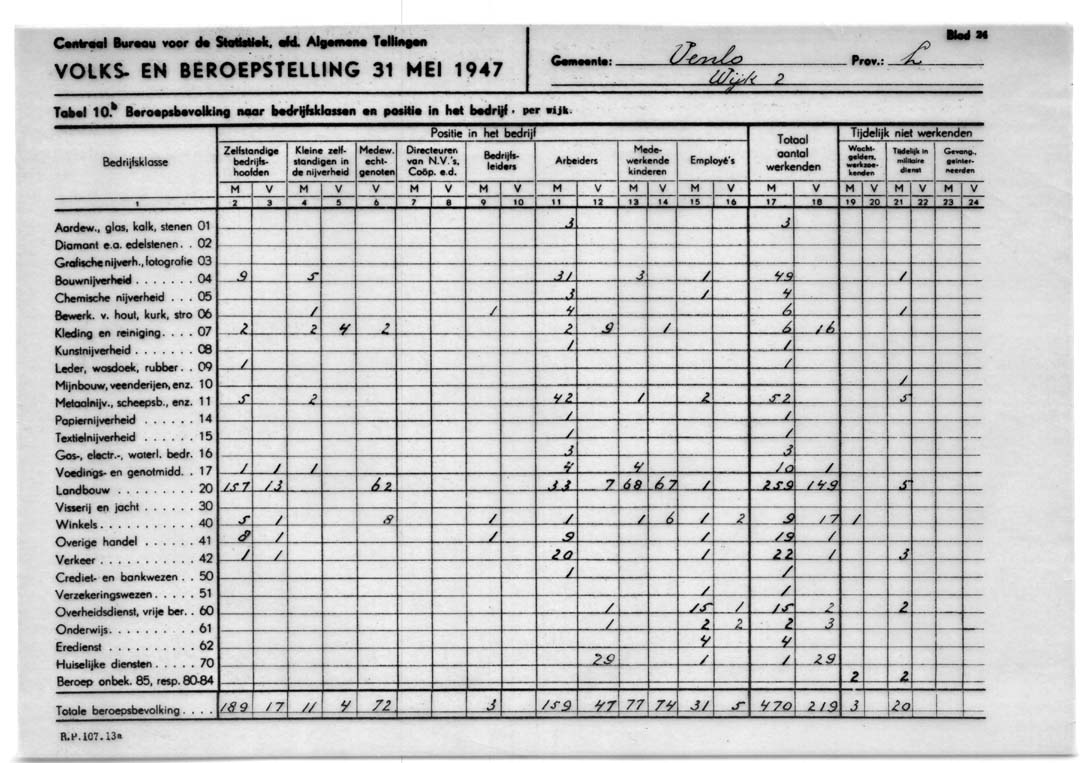 Centraal Bureau voor de Statistiek, afd. Algemene Tellingen
VOLKS- EN BEROEPSTELLING 31 MEI 1947
Gemeente: Venlo Prov.: L
Wijk 2
Blad 24
Tabel 10.b Beroepsbevolking naar bedrijfsklassen en positie in het bedrijf. per wijk.
Bedrijfsklasse
Positie in het bedrijf
Zelfstandige bedrijfs-hoofden
Kleine zelf-standigen in de nijverheid
Medew. echt-genoten
Directeuren van N.V.'s, Coöp. e.d.
Bedrijfs-leiders
Arbeiders
Mede-werkende kinderen
Employé's
Totaal aantal werkenden
Tijdelijk niet werkenden
Wacht-gelders, werkzoe-kenden
Tijdelijk in militaire dienst
Gevang., geinter-neerden
M V M V V M V M V M V M V M V M V M V M V M V
1 2 3 4 5 6 7 8 9 10 11 12 13 14 15 16 17 18 19 20 21 22 23 24
Aardew., glas, kalk, stenen 01 3 3
Diamant e.a. edelstenen . . 02
Grafische nijverh., fotografie 03
Bouwnijverheid . . . . . . . 04 9 5 31 3 1 49 1
Chemische nijverheid . . . 05 3 1 4
Bewerk. v. hout, kurk, stro 06 1 1 4 6 1
Kleding en reiniging. . . . 07 2 2 4 2 2 9 1 6 16
Kunstnijverheid . . . . . . . 08 1 1
Leder, wasdoek, rubber . . 09 1 1
Mijnbouw, veenderijen, enz. 10 1
Metaalnijv., scheepsb., enz. 11 5 2 42 1 2 52 5
Papiernijverheid . . . . . . 14 1 1
Textielnijverheid . . . . . . 15 1 1
Gas-, electr.-, waterl. bedr. 16 3 3
Voedings- en genotmidd. . 17 1 1 1 4 4 10 1
Landbouw . . . . . . . . . 20 157 13 62 33 7 68 67 1 259 149 5
Visserij en jacht . . . . . . 30
Winkels . . . . . . . . . . . 40 5 1 8 1 1 1 6 1 2 9 17 1
Overige handel . . . . . . . 41 8 1 1 9 1 19 1
Verkeer . . . . . . . . . . . 42 1 1 20 1 22 1 3
Crediet- en bankwezen . . 50 1 1
Verzekeringswezen . . . . . 51 1 1
Overheidsdienst, vrije ber. . 60 1 15 1 15 2 2
Onderwijs. . . . . . . . . . 61 1 2 2 2 3
Eredienst . . . . . . . . . . 62 4 4
Huiselijke diensten . . . . . 70 29 1 1 29
Beroep onbek. 85, resp. 80-84 2 2
Totale beroepsbevolking . . . . 189 17 11 4 72 3 159 47 77 74 31 5 470 219 3 20
R.P.107.13a